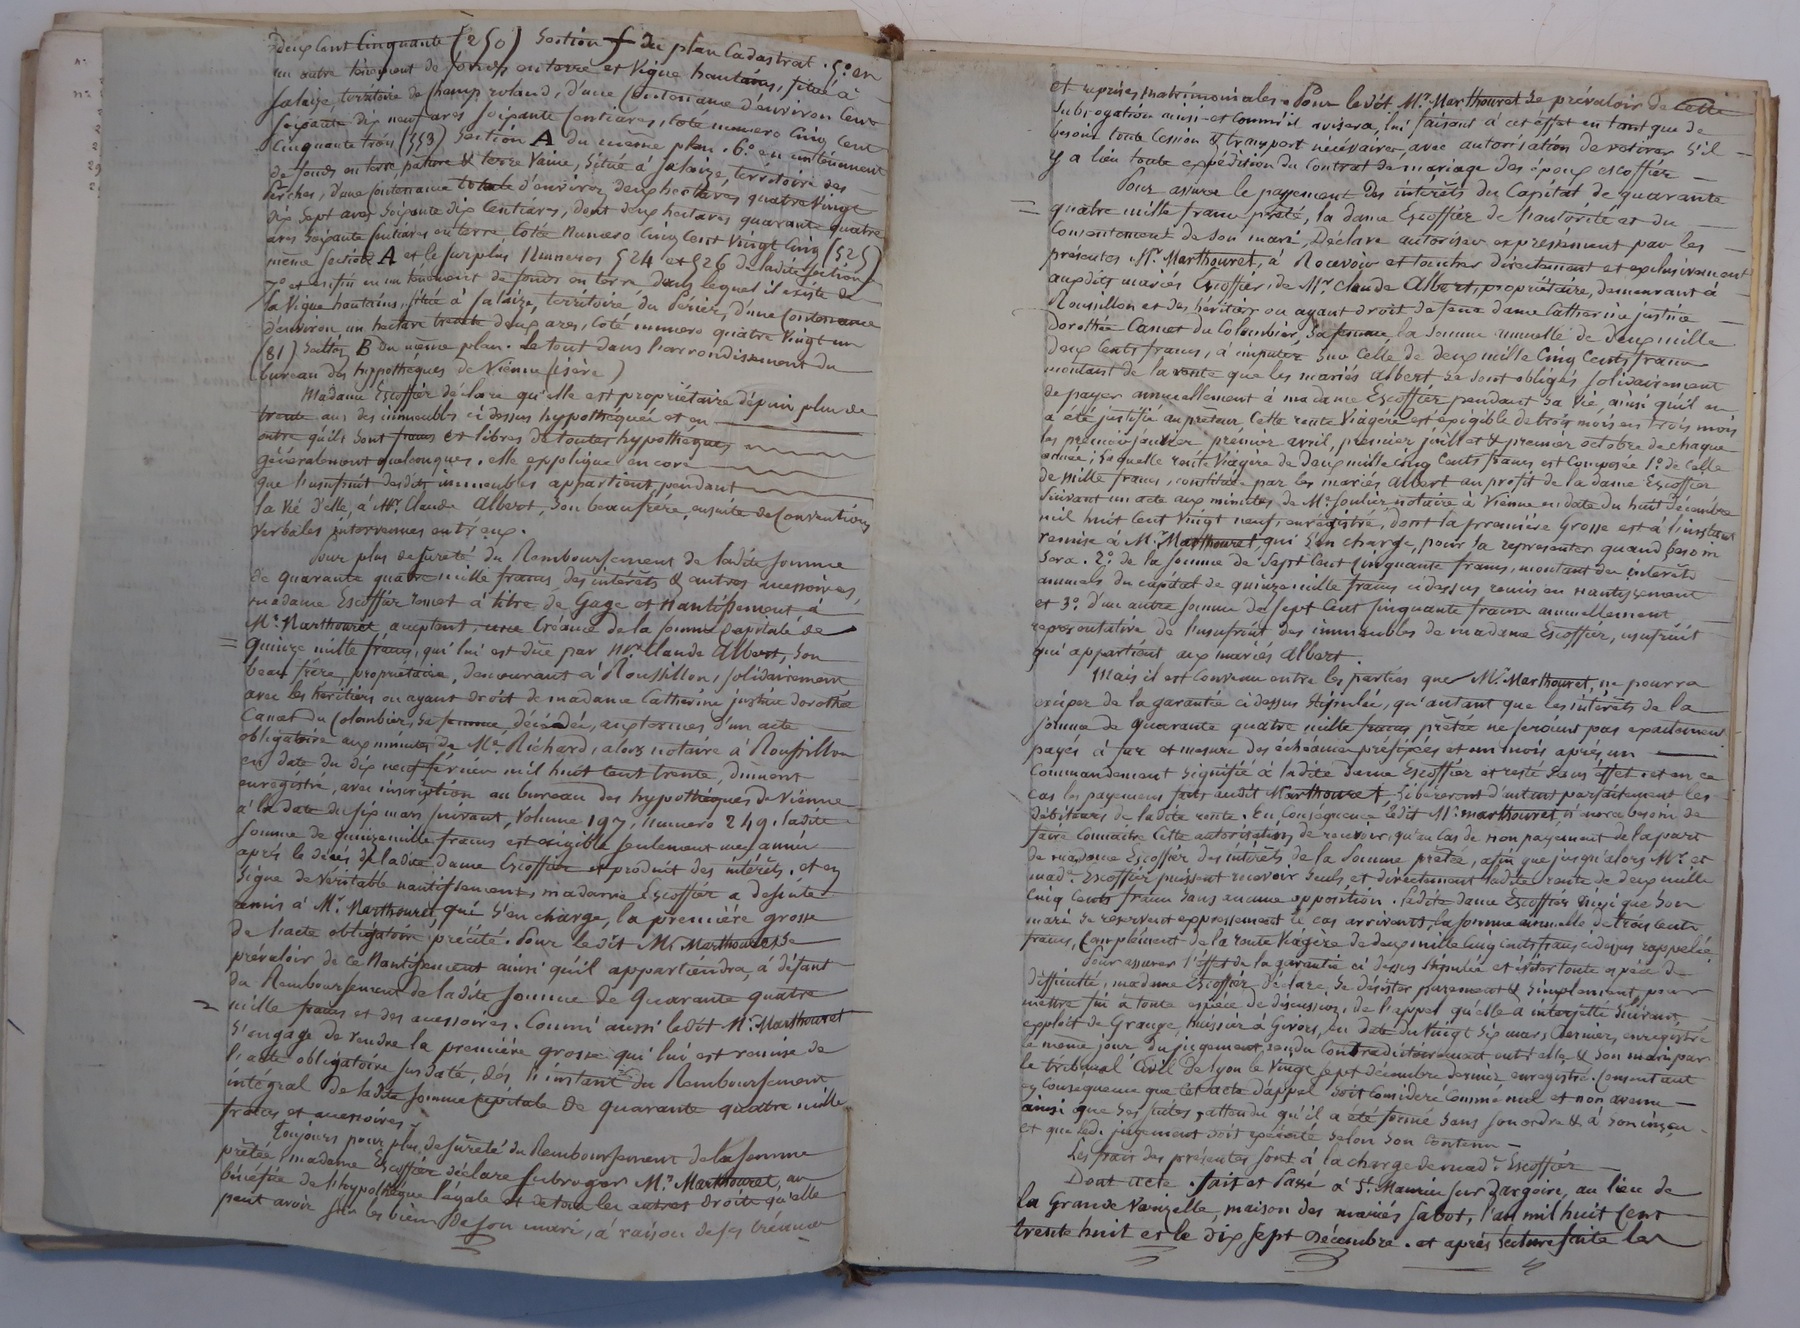 deux cent cinquante (250) Section f du plan Cadastral. 5.° en
un autre tènement de fonds en terre et Vigne hautains, situé à
Salaize, territoire de Champ roland, d'une Contenance d'environ Cent
soixante dix neuf ares soixante Centiares, coté numero Cinq Cent
Cinquante trois (553) Section A du même plan. 6.° en un tènement
de fonds en terre, pature & terre Vaine, Situé à Salaize, territoire des
Perches, d'une Contenance totale d'environ deux hectares quatre Vingt
dix sept ares soixante dix Centiares, dont deux hectares quarante quatre
ares soixante Centiares en terre coté Numero Cinq Cent Vingt Cinq (525)
même section A et le surplus Numeros 524 et 526 de ladite section
7.° et enfin en un tènement de fonds en terre dans lequel il existe de
la Vigne hautains, situé à Salaize, territoire du Périer, d'une Contenance
d'environ un hectare trente deux ares, coté numero quatre Vingt un
(81) Section B du même plan. Le tout dans l'arrondissement du
bureau des hyppothèques de Vienne (isère)
Madame Escoffier déclare qu'elle est propriétaire depuis plus de
trente ans des immeubles ci dessus hypothéqués et en
outre qu'ils sont francs et libres de toutes hypotheques
généralement quelconques. elle explique encore
que l'usufruit desdits immeubles appartient pendant
la vie d'elle, à Mr. Claude Albert, Son beaufrère, ensuite de Conventions
Verbales intervenues entr'eux.
Pour plus de sureté du Remboursement de ladite somme
de quarante quatre mille francs, des intérêts & autres accessoires,
madame Escoffier remet à titre de Gage et Nantissement à
Mr. Marthouret acceptant, une Créance de la somme Capitale de
quinze mille francs, qui lui est due par Mr. Claude Albert, Son
beau frère, propriétaire, demeurant à Roussillon, solidairement
avec les héritiers ou ayant droit de madame Catherine justine dorothée
Canet du Colombier, sa femme, décédée, aux termes d'un acte
obligatoire aux minutes de Me. Richard, alors notaire à Roussillon
en date du dix neuf février mil huit cent trente, dûment
enregistré, avec inscription au bureau des hypothèques de Vienne
à la date du six mars suivant, Volume 197, numero 249. ladite
somme de quinze mille francs est exigible seulement une année
après le décès de ladite dame Escoffier et produit des intérêts. et en
Signe de Véritable nantissement, madame Escoffier a de suite
remis à Mr. Marthouret, qui s'en charge, la première grosse
de l'acte obligatoire précité. Pour ledit Mr. Marthouret, se
prévaloir de ce Nantissement ainsi qu'il appartiendra, à défaut
du Remboursement de ladite somme de Quarante quatre
mille francs et des accessoires. Comme aussi ledit Mr. Marthouret
S'engage de rendre la première grosse qui lui est remise de
l'acte obligatoire susdaté, dès l'instant du Remboursement
intégral de ladite somme Capitale de quarante quatre mille
francs et accessoires.
Toujours pour plus de sûreté du Remboursement de la somme
prêtée, madame Escoffier déclare subroger Mr. Marthouret, au
bénéfice de l'hypothèque légale et de tous les autres droits qu'elle
peut avoir sur les biens de son mari, à raison de ses créances
et reprises matrimoniales. Pour ledit Mr. Marthouret se prévaloir de cette
subrogation ainsi et comme il avisera, lui faisant à cet effet en tant que de
besoin toute Cession & transport nécessaires, avec autorisation de retirer s'il
y a lieu toute expédition du Contrat de mariage des époux escoffier
Pour assurer le payement des intérêts du Capital de quarante
quatre mille francs prêté, la dame Escoffier de l'autorité et du
Consentement de son mari, Déclare autoriser expressément par les
présentes Mr. Marthouret, à Recevoir et toucher directement et exclusivement
auxdits mariés Escoffier, de Mr. Claude Albert, propriétaire, demeurant à
Roussillon et des héritiers ou ayant droit de feue dame Catherine justine
dorothée Canet du Colombier, sa femme, la Somme annuelle de deux mille
deux Cents francs, à imputer sur celle de deux mille Cinq Cents francs
montant de la rente que les mariés Albert se sont obligés solidairement
de payer annuellement à madame Escoffier pendant sa vie, ainsi qu'il en
a été justifié au prêteur, Cette rente Viagère est exigible de trois mois en trois mois
les premier janvier, premier avril, premier juillet & premier octobre de chaque
année; laquelle rente Viagère de deux mille cinq Cents francs est Composée 1.° de celle
de mille francs, constituée par les mariés Albert au profit de la dame Escoffier
suivant un acte aux minutes de Me. soulier, notaire à Vienne en date du huit décembre
mil huit Cent Vingt neuf, enregistré, dont la première Grosse est à l'instant
remise à Mr. Marthouret, qui s'en charge, pour la représenter quand besoin
sera. 2.° de la somme de sept Cent Cinquante francs, montant des intérêts
annuels du capital de quinze mille francs ci dessus remis en nantissement
et 3.° d'une autre somme de sept Cent Cinquante francs annuellement
représentative de l'usufruit des immeubles de madame Escoffier, usufruit
qui appartient aux mariés Albert.
Mais il est Convenu entre les parties que Mr. Marthouret, ne pourra
exciper de la garantie ci dessus stipulée, qu'autant que les intérêts de la
somme de quarante quatre mille francs prêtée ne seroient pas exactement
payés à fur et mesure des échéances préfixées et un mois après un
Commandement signifié à ladite dame Escoffier et resté sans effet. et en ce
cas les payemens faits audit Marthouret, libéreront d'autant parfaitement les
débiteurs de ladite rente. En conséquence ledit Mr. marthouret, n'aura besoin de
faire connaitre Cette autorisation de recevoir, qu'au cas de non payement de la part
de madame Escoffier des intérêts de la Somme prêtée, afin que jusqu'alors Mr. et
mad.e Escoffier puissent recevoir seuls et directement ladite rente de deux mille
Cinq Cents francs sans aucune opposition. ladite dame Escoffier ainsi que Son
mari se réservent expressement le cas arrivant, la somme annuelle de trois Cents
francs, Complément de la rente Viagère de deux mille Cinq Cents francs ci dessus rappelée.
Pour assurer l'effet de la garantie ci dessus stipulée et éviter toute espèce de
difficulté, madame Escoffier déclare se désister purement & simplement, pour
mettre fin à toute espèce de discussion, de l'appel qu'elle a interjetté suivant
exploit de Grange huissier à Givors, en date du Vingt six mars dernier, enregistré
le même jour du jugement, rendu Contradictoirement entr'elle & son mari par
le tribunal Civil de Lyon le Vingt sept décembre dernier enregistré. Consentant
en Consequence que Cet acte d'appel soit Considéré Comme nul et non avenu
ainsi que ses suites, attendu qu'il a été formé sans son ordre & à son insçu
et que led. jugement soit exécuté selon son Contenu
Les frais des présentes sont à la charge de mad.e Escoffier
Dont acte. fait et Passé à St. Maurice sur dargoire, au lieu de
la Grande Varizelle, maison des mariés sabot, l'an mil huit Cent
trente huit et le dix sept Décembre. et après lecture faite les